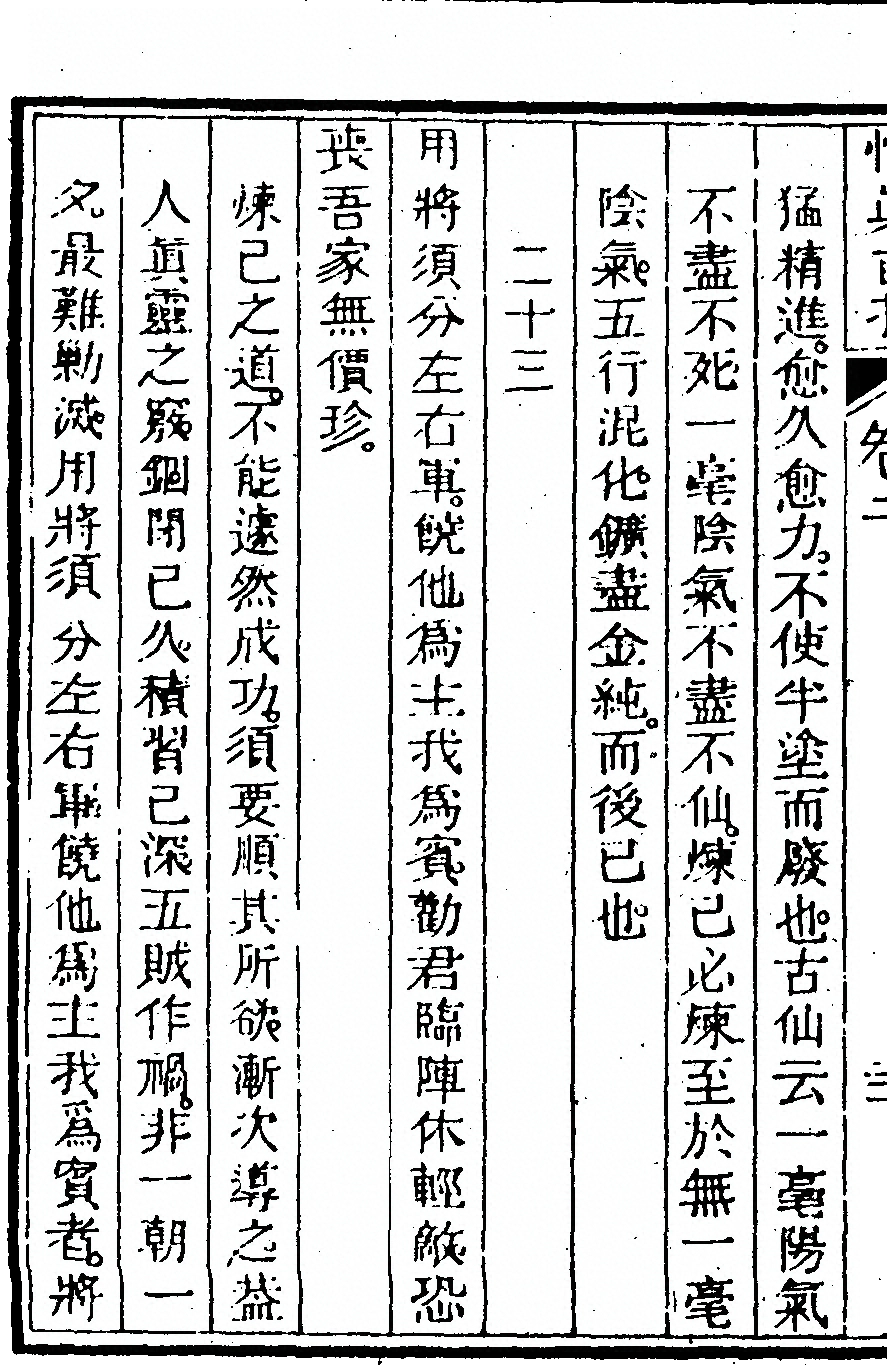 卷二
猛精進。愈久愈力。不使半塗而廢也。古仙云一毫陽氣
不盡不死一毫陰氣不盡不仙。煉己必煉至於無一毫
陰氣。五行混化。鑛盡金純。而後已也。
二十三
用將須分左右軍。饒他爲主我爲賓。勸君臨陣休輕敵。恐
喪吾家無價珍。
煉己之道。不能遽然成功。須要順其所欲。漸次導之。益
人眞靈之竅。錮閉已久。積習已深。五賊作禍。非一朝一
夕。最難勦滅。用將須分左右軍。饒他爲主我爲賓者。將